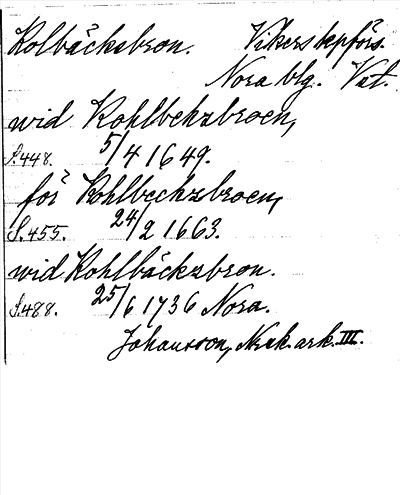 Kolbäcksbron. Vikers kapförs.
Nora blg. Vstm.
wid Kohlbekzbroen,
S.448. 5/4 1649.
för Kohlbechzbroen,
S.455. 24/2 1663.
wid Kohlbäckzbron.
S.488. 25/6 1736 Nora.
Johansson, Nrak. ark. III.